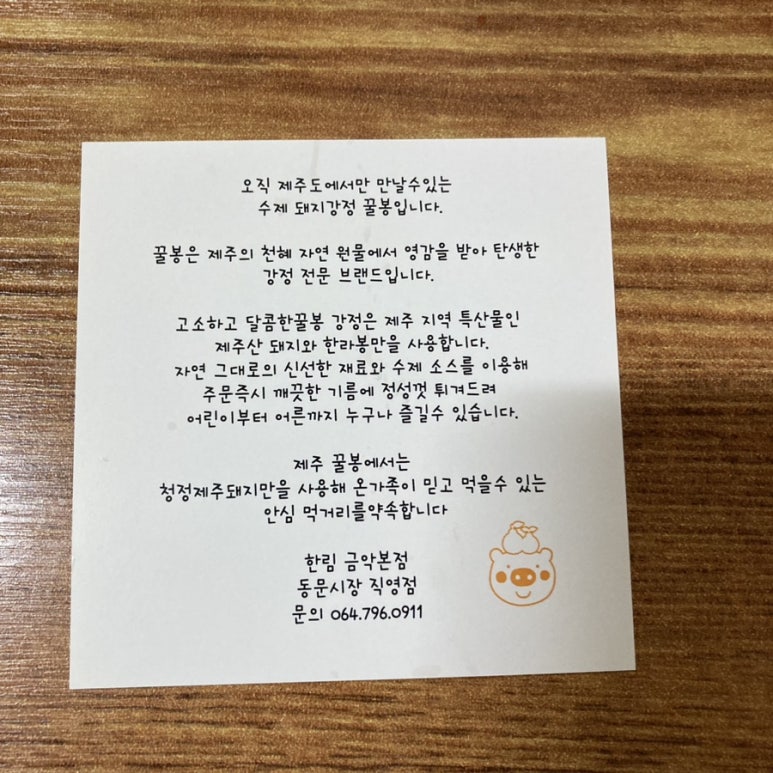 오직 제주도에서만 만날수있는
수제 돼지강정 꿀봉입니다.
꿀봉은 제주의 천혜 자연 원물에서 영감을 받아 탄생한
강정 전문 브랜드입니다.
고소하고 달콤한꿀봉 강정은 제주 지역 특산물인
제주산 돼지와 한라봉만을 사용합니다.
자연 그대로의 신선한 재료와 수제 소스를 이용해
주문즉시 깨끗한 기름에 정성껏 튀겨드려
어린이부터 어른까지 누구나 즐길수 있습니다.
제주 꿀봉에서는
청정제주돼지만을 사용해 온가족이 믿고 먹을수 있는
안심 먹거리를약속합니다
한림 금악본점
동문시장 직영점
문의 064.796.0911